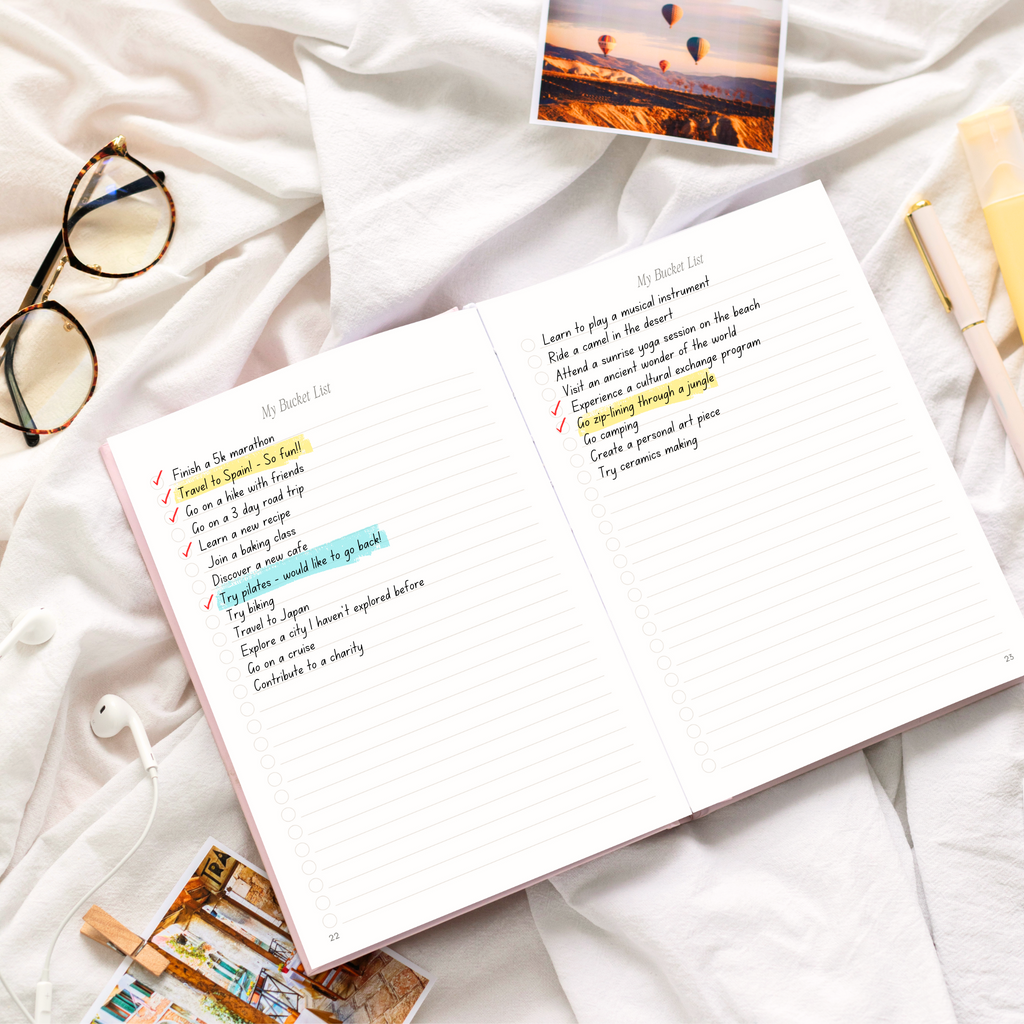 My Bucket List
Finish a 5k marathon
Travel to Spain! - So fun!!
Go on a hike with friends
Go on a 3 day road trip
Learn a new recipe
Join a baking class
Discover a new cafe
Try pilates - would like to go back!
Try biking
Travel to Japan
Explore a city I haven't explored before
Go on a cruise
Contribute to a charity
22
My Bucket List
Learn to play a musical instrument
Ride a camel in the desert
Attend a sunrise yoga session on the beach
Visit an ancient wonder of the world
Experience a cultural exchange program
Go zip-lining through a jungle
Go camping
Create a personal art piece
Try ceramics making
23
TRA